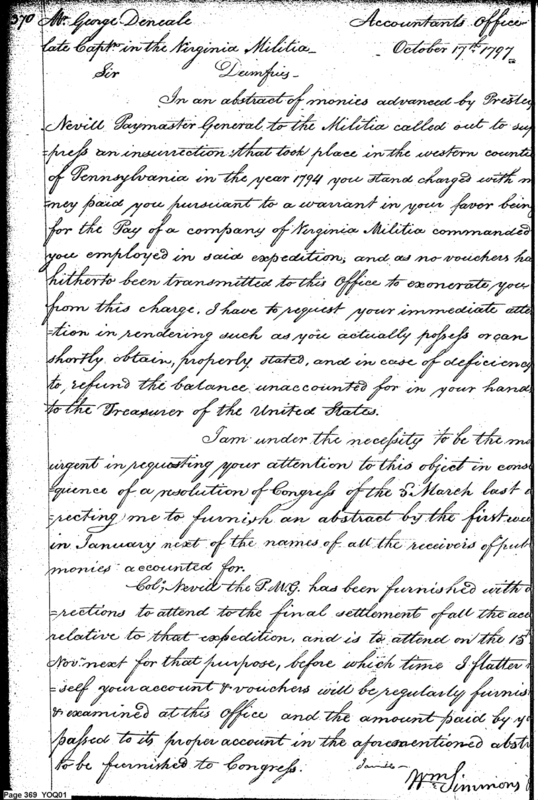 370 Mr. George Deneale Accountants Office
late Capt. in the Virginia Militia October 17th 1797
Sir Dumfries
In an abstract of monies advanced by Presley
Nevill Paymaster General to the Militia called out to sup
=press an insurrection that took place in the western countie
of Pennsylvania in the year 1794 you stand charged with m
=ney paid you pursuant to a warrant in your favor being
for the Pay of a company of Virginia Militia commanded
you employed in said expedition, and as no vouchers ha
hitherto been transmitted to this Office to exonerate you
from this charge. I have to request your immediate atte
=tion in rendering such as you actually possess or can
shortly obtain, properly stated, and in case of deficiency
to, refund the balance unaccounted for in your hand
to the Treasurer of the United States.
I am under the necessity to be the mo
urgent in requesting your attention to this object in conse
=quence of a resolution of Congress of the 3 March last d
=recting me to furnish an abstract by the first wee
in January next of the names of all the receivers of pub
monies accounted for.
Col; Nevill the P.M.G. has been furnished with d
=rections to attend to the final settlement of all the acc
relative to that expedition, and is to attend on the 15
Nov. next for that purpose, before which time I flatter m
=self your account & vouchers will be regularly furnis
& examined at this Office and the amount paid by yo
passed to its proper account in the aforementioned abst
to be furnished to Congress.
Wm Simmons
Page 369 YOQ01